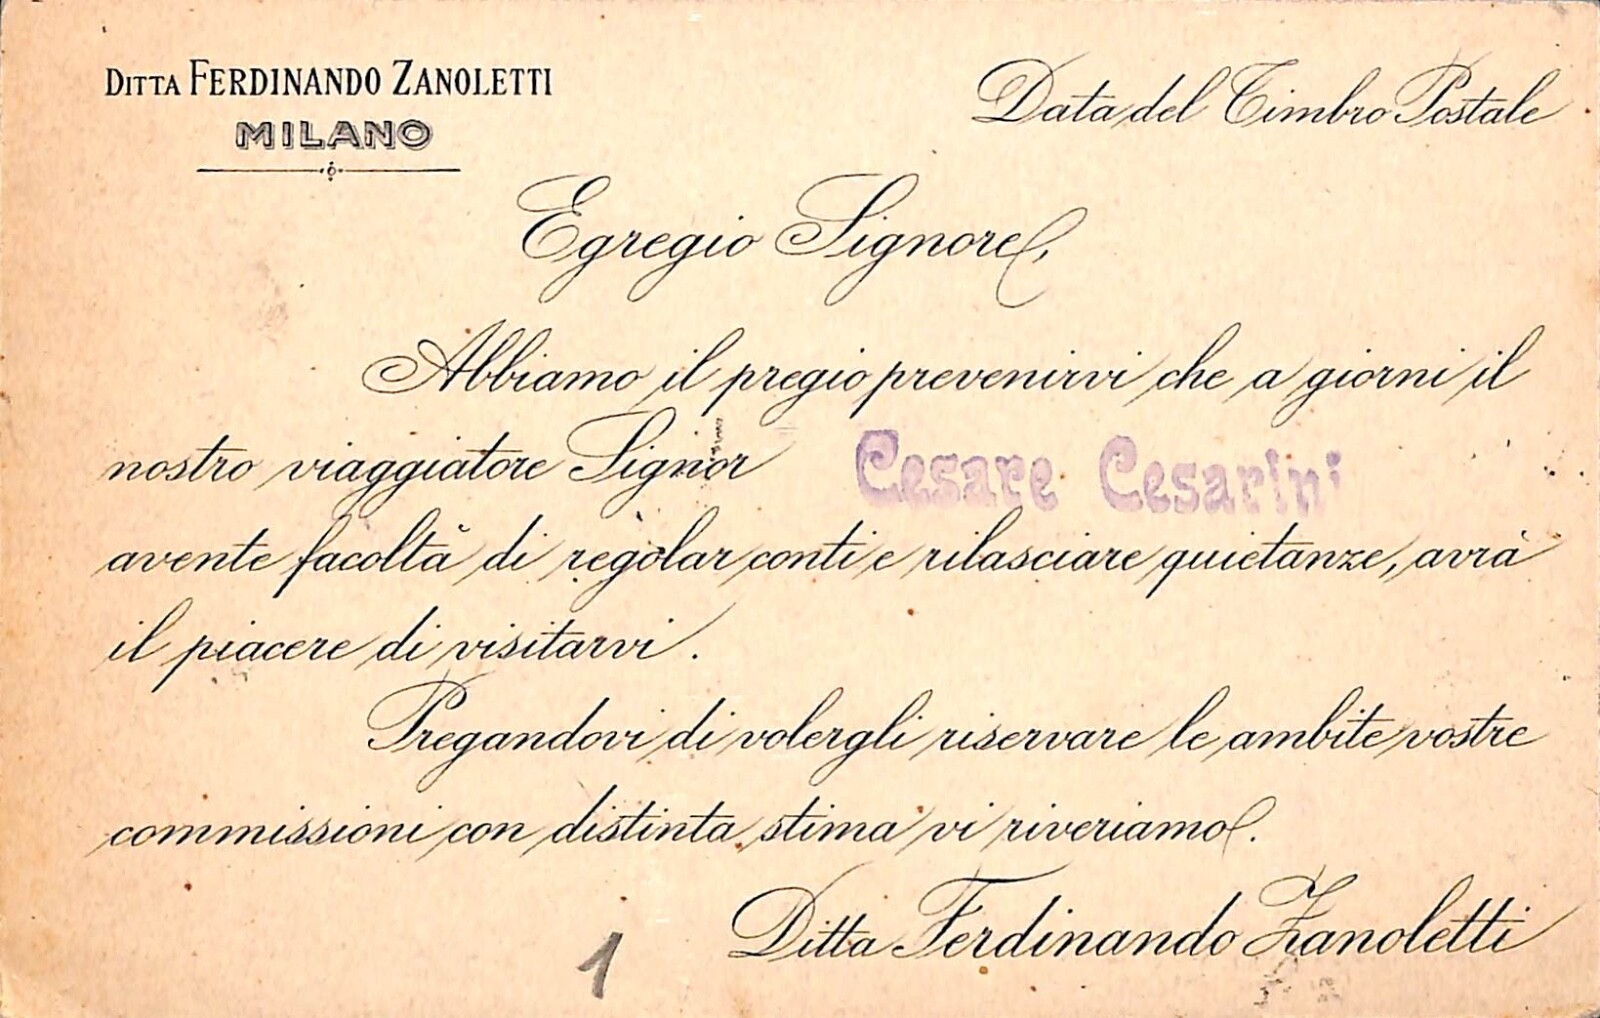 DITTA FERDINANDO ZANOLETTI
MILANO
Data del Timbro Postale
Egregio Signore,
Abbiamo il pregio prevenirvi che a giorni il
nostro viaggiatore Signor Cesare Cesarini
avente facoltà di regolar conti e rilasciare quietanze, avrà
il piacere di visitarvi.
Pregandovi di volergli riservare le ambite vostre
commissioni con distinta stima vi riveriamo.
Ditta Ferdinando Zanoletti
1